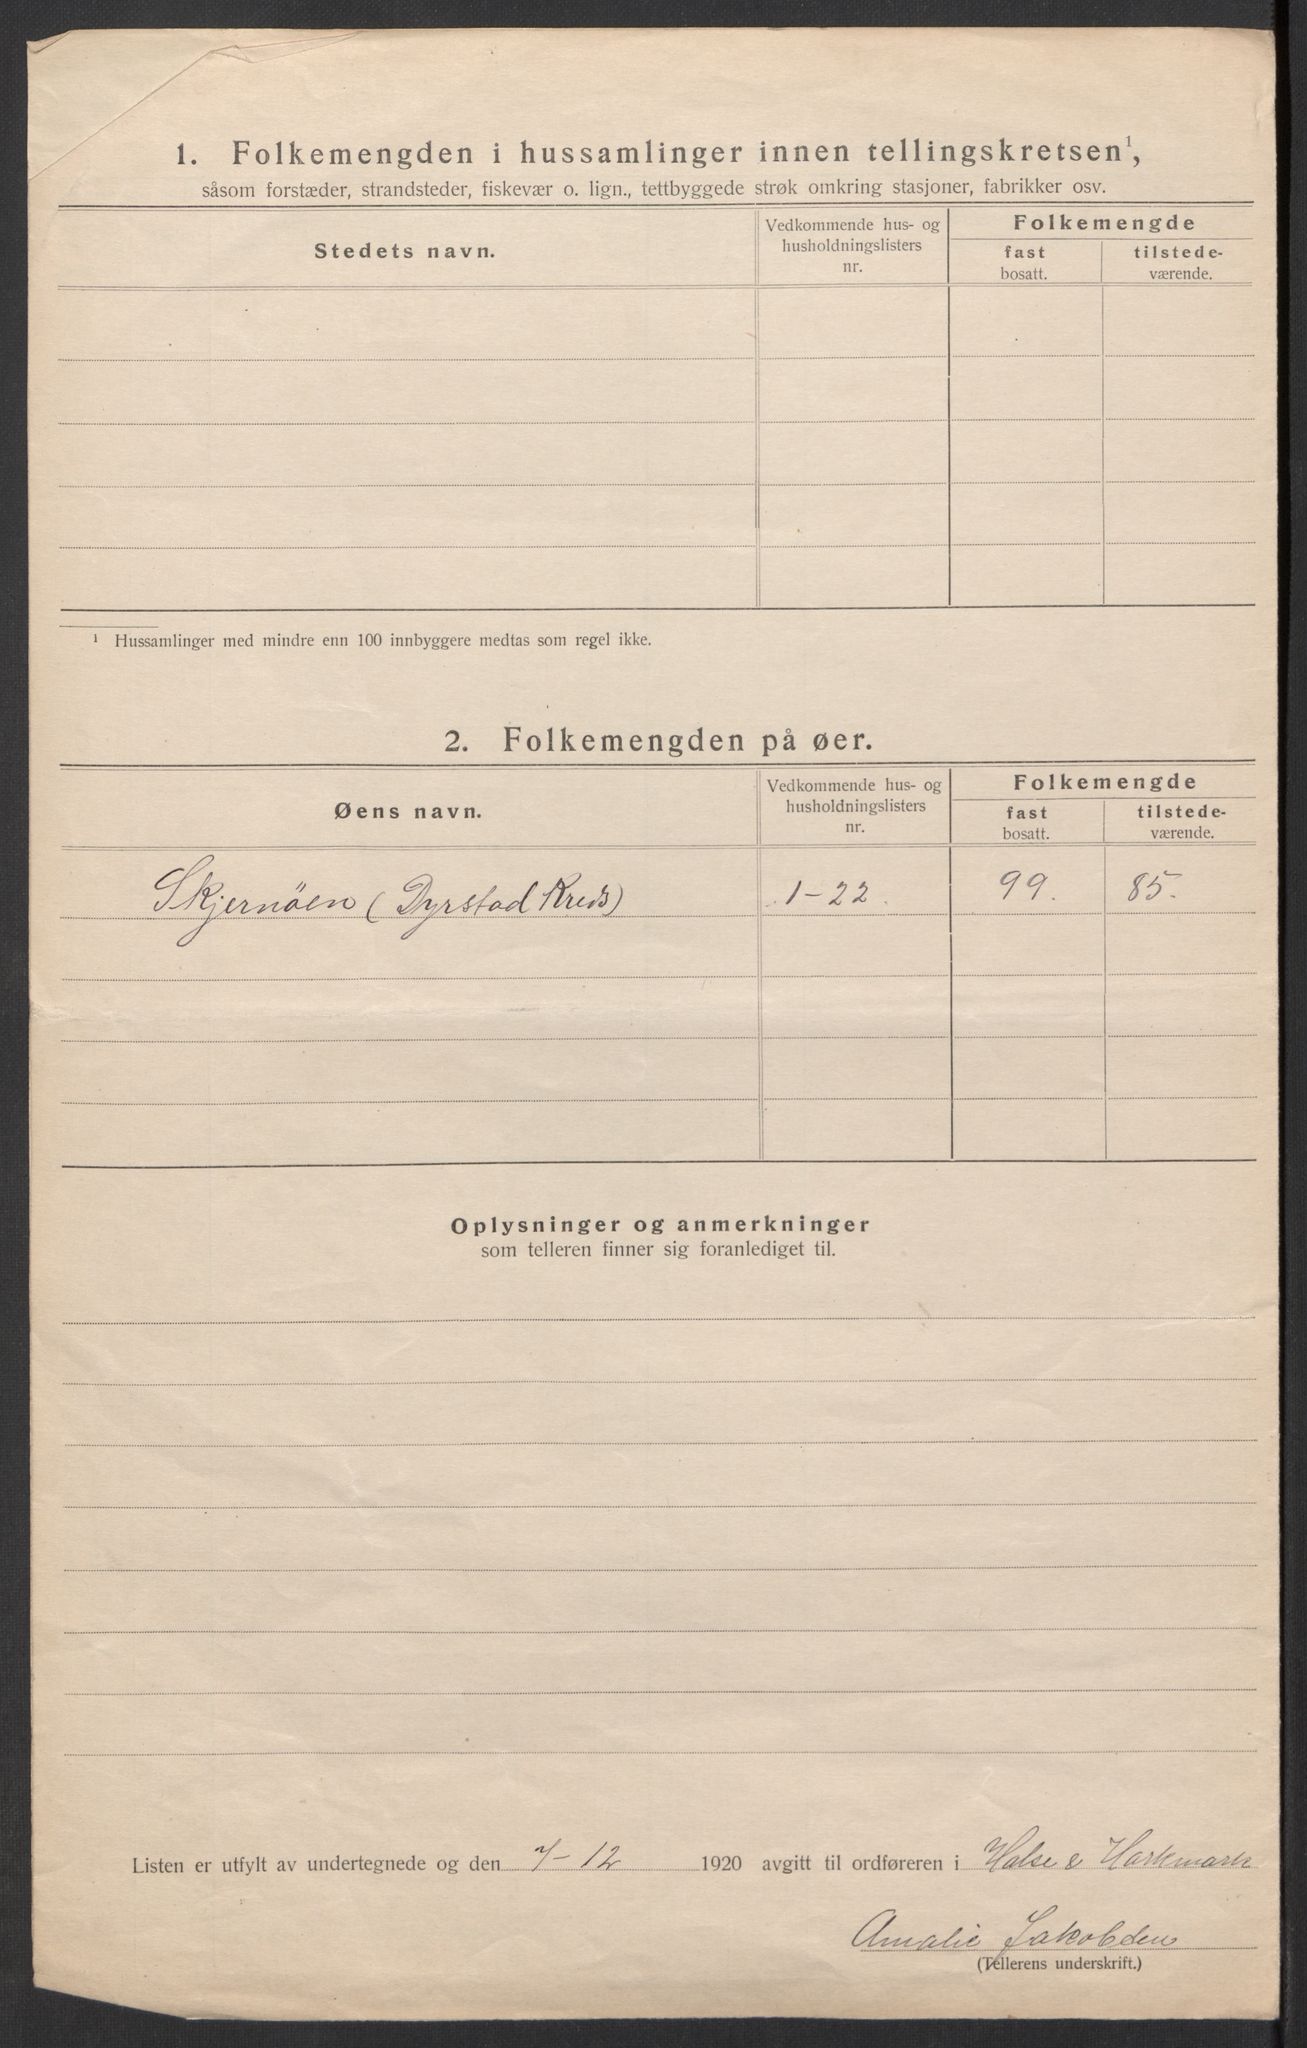 1. Folkemengden i hussamlinger innen tellingskretsen¹,
såsom forstæder, strandsteder, fiskevær o. lign., tettbyggede strøk omkring stasjoner, fabrikker osv.
Stedets navn.
Vedkommende hus- og
husholdningslisters
nr.
Folkemengde
fast
bosatt.
tilstede-
værende.
¹ Hussamlinger med mindre enn 100 innbyggere medtas som regel ikke.
2. Folkemengden på øer.
Øens navn.
Vedkommende hus- og
husholdningslisters
nr.
Folkemengde
fast
bosatt.
tilstede-
værende.
Skjernöen (Dyrstad Kreds) 1-22. 99. 85.
Oplysninger og anmerkninger
som telleren finner sig foranlediget til.
Listen er utfylt av undertegnede og den 7-12 1920 avgitt til ordføreren i Halse & Harkmark
Amalie Jakobsen
(Tellerens underskrift.)